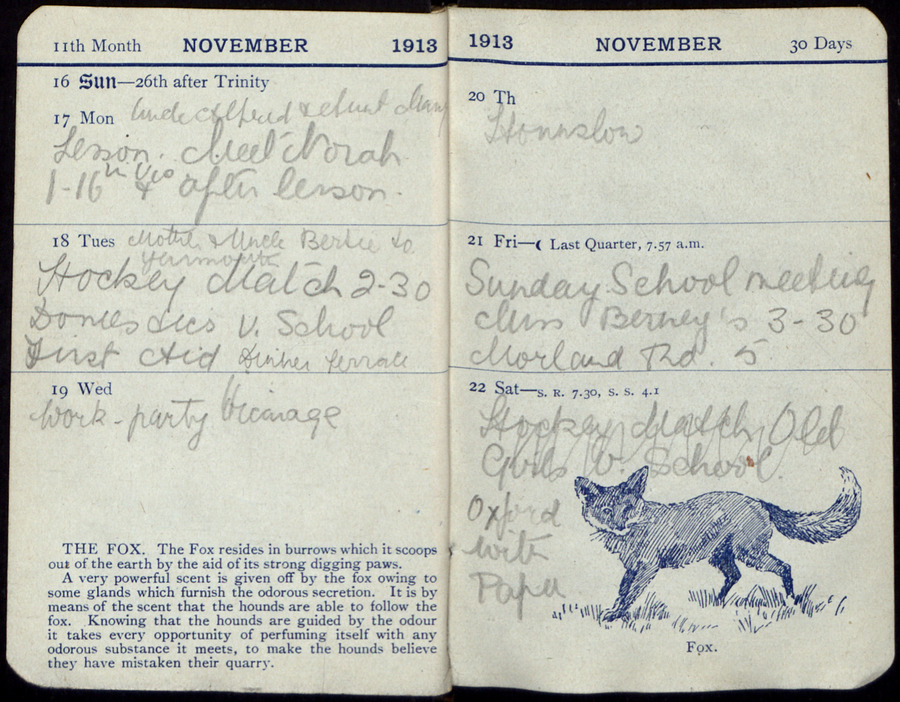 11th Month NOVEMBER 1913
16 Sun—26th after Trinity
17 Mon Uncle Alfred & Aunt Mary
Lesson. Meet Norah
1-16 & after lesson.
18 Tues Mother & Uncle Bertie to
Yarmouth
Hockey Match 2-30
Domestics v. School
First Aid Dinner Terrace
19 Wed
Work-party Vicarage
THE FOX. The Fox resides in burrows which it scoops
out of the earth by the aid of its strong digging paws.
A very powerful scent is given off by the fox owing to
some glands which furnish the odorous secretion. It is by
means of the scent that the hounds are able to follow the
fox. Knowing that the hounds are guided by the odour
it takes every opportunity of perfuming itself with any
odorous substance it meets, to make the hounds believe
they have mistaken their quarry.
1913 NOVEMBER 30 Days
20 Th
Hounslow
21 Fri—☾ Last Quarter, 7.57 a.m.
Sunday School meeting
Miss Berney's 3-30
Morland Rd. 5
22 Sat—S. R. 7.30, S. S. 4.1
Hockey Match Old
Girls v. School
Oxford
with
Papa
Fox.